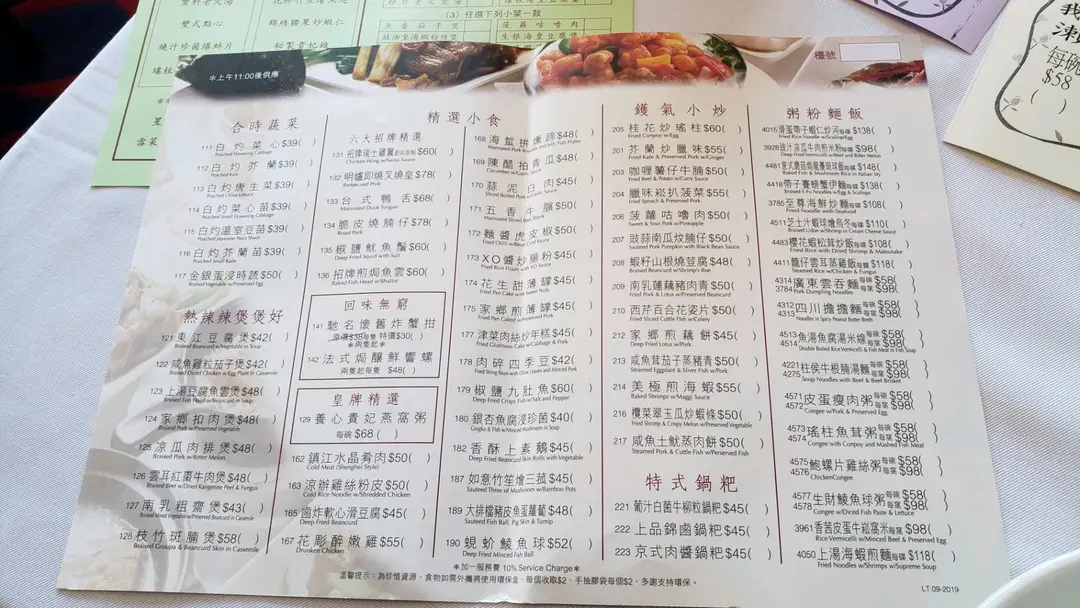 雙式點心
錦綉腰果炒蝦仁
燒汁珍菌爆蚌片
秘製貴妃雞
(3) 任選下列小菜一款
魚香茄子煲
菠蘿咕嚕肉
$58
( )
檯號
*上午11:00後供應
合時蔬菜
111 白灼菜心 $39( )
Poached Flowering Cabbage
112 白灼芥蘭 $39( )
113 白灼唐生菜 $39( )
Poached China Lettuce
114 白灼菜心苗 $39( )
Poached Small Flowering Cabbage
115 白灼溫室豆苗 $39( )
Poached Japanese Pea's Shoot
116 白灼芥蘭苗 $39( )
Poached Small Kale
117 金銀蛋浸時蔬 $50( )
Braised Vegetable w/Preserved Egg
熱辣辣煲煲好
121 東江豆腐煲 $42( )
Braised Beancurd w/Vegetable in Soup
122 咸魚雞粒茄子煲 $42( )
Braised Diced Chicken w/Egg Plant in Casserole
123 上湯豆腐魚雲煲 $48( )
Braised Fish Head w/Beancurd in Soup
124 家鄉扣肉煲 $48( )
Braised Pork w/Preserved Vegetable
125 涼瓜肉排煲 $48( )
Braised Pork w/Bitter Melon
126 雲耳紅棗牛肉煲 $48( )
Braised Beef w/Dried Kangerine Peel & Fungus
127 南乳粗齋煲 $43( )
Braised Mixed Vegetable w/Preserved Beancurd in Casserole
128 枝竹斑腩煲 $58( )
Braised Groupa & Beancurd Skin in Casserole
精選小食
六大招牌精選
131 招牌瑞士雞翼 $60( )
Chicken Wing w/Swiss Sauce
132 明爐即燒叉燒皇 $78( )
Barbecued Pork
133 台式鴨舌 $68( )
Marinated Duck Tongue
134 脆皮燒腩仔 $78( )
Roast Pork
135 椒鹽魷魚鬚 $60( )
Deep Fried Squid with Salt
136 招牌煎焗魚雲 $60( )
Baked Fish Head w/Shallot
回味無窮
141 馳名懷舊炸蟹拑
原價$38每隻 特價$30( )
*兩隻起*
142 法式焗釀鮮響螺
兩隻起每隻 $48( )
皇牌精選
129 養心貴妃燕窩粥
每碗 $68 ( )
162 鎮江水晶肴肉 $50( )
Cold Meat (Shenghei Style)
163 涼辦雞絲粉皮 $50( )
Cold Rice Noodle w/Shredded Chicken
165 鹵炸軟心滑豆腐 $45( )
Deep Fried Beancurd
167 花彫醉嫩雞 $55( )
Drunken Chicken
168 海蜇拼燻蹄 $48( )
169 陳醋拍青瓜 $48( )
Cucumber w/Garlic Sauce
170 蒜泥白肉 $45( )
Sliced Boiled Pork w/Garlic Sauce
171 五香牛𦟌 $50( )
Marinated Sliced Beef Shank
172 麵醬虎皮椒 $50( )
173 XO醬炒腸粉 $45( )
174 花生甜薄罉 $45( )
Fried Pan Cake w/Sweet Nuts
175 家鄉煎薄罉 $45( )
Fried Pan Caked w/Preserved
177 津菜肉絲炒年糕 $45( )
Fried Glutinous Cake w/Cabbage & Pork
178 肉碎四季豆 $42( )
179 椒鹽九肚魚 $60( )
Deep Fried Crispy Fish w/Salt and Pepper
180 銀杏魚腐浸珍菌 $40( )
182 香酥上素鵝 $45( )
Deep Fried Beancurd Skin Rolls with Vegetable
187 如意竹笙燴三菇 $45( )
Sauteed Three of Mushroom w/Bamboo Pots
189 大排檔豬皮魚蛋蘿蔔 $48( )
Sauteed Fish Ball, Pig Skin & Turnip
190 蜆蚧鯪魚球 $52( )
Deep Fried Minced Fish Ball
鑊氣小炒
205 桂花炒瑤柱 $60( )
Fried Conpoy w/Egg
201 芥蘭炒臘味 $55( )
Fried Kale & Preserved Pork w/Ginger
203 咖喱薯仔牛腩 $50( )
Fried Beef & Potato w/Curry Sauce
204 臘味崧扒菠菜 $55( )
Fried Spinach & Preserved Pork
206 菠蘿咕嚕肉 $50( )
Sweet & Sour Pork w/Pineapple
207 豉蒜南瓜炆腩仔 $50( )
Sauteed Pork Pumpkin with Black Bean Sauce
208 蝦籽山根燒豆腐 $48( )
Braised Beancurd w/Shrimp's Roe
209 南乳蓮藕豬肉青 $50( )
Fried Pork & Lotus w/Preserved Beancurd
210 西芹百合花姿片 $50( )
Fried Sliced Cuttle Fish w/Celery
212 家鄉煎藕餅 $45( )
Deep Fried Lotus w/Pork
213 咸魚茸茄子蒸豬青 $50( )
Steamed Eggplant & Sliver Fish w/Pork
214 美極煎海蝦 $55( )
Baked Shrimps w/Maggi Sauce
216 欖菜翠玉瓜炒蝦條 $50( )
Fried Shrimp & Crispy Melon w/Preserved Vegetable
217 咸魚土魷蒸肉餅 $50( )
Steamed Pork & Cuttle Fish w/Perserved Fish
特式鍋粑
221 葡汁白菌牛柳粒鍋粑 $45( )
222 上品錦鹵鍋粑 $45( )
223 京式肉醬鍋粑 $45( )
粥粉麵飯
4015 滑蛋帶子蝦仁炒河每碟 $138( )
Fried Rice Noodle w/Scallop/Egg
3928 豉汁涼瓜牛肉煎米粉每碟 $98( )
Deep Fried Vermicelli w/Beef and Bitter Melon
4481 意式鹿茹焗龍薯斑球飯每碟 $148( )
Baked Fish & Mushroom Rice in Italian Sty
4418 帶子賽螃蟹伊麵每碟 $138( )
Braised E-Fu Noodles w/Egg & Scallops
3785 至尊海鮮炒麵每碟 $108( )
Fried Noodle with Seafood
4511 芝士汁蝦球燴烏冬每碟 $110( )
Braised Udon w/Shrimp in Cream Cheese Sauce
4483 櫻花蝦松茸炒飯每碟 $108( )
Fried Rice with Dried Shrimp & Matsutake
4411 籠仔雲耳蒸雞飯每碟 $118( )
Steamed Rice w/Chicken & Fungus
4314 3784 廣東雲吞麵每碗 $58( 每窩 $98( )
Pork Dumpling Noodles
4312 4313 四川擔擔麵每碗 $58( 每窩 $98( )
Noodle in Spicy Peanut Butter Broth
4513 4514 魚湯魚腐湯米線每碗 $58( 每窩 $98( )
Double Boiled Rice Vermicelli & Fish Meat in Fish Soup
4221 4275 柱侯牛根腩湯麵每碗 $58( 每窩 $98( )
Soup Noodles with Beef & Beef Brisket
4571 4572 皮蛋瘦肉粥每碗 $58( 每窩 $98( )
Congee w/Pork & Preserved Egg
4573 4574 瑤柱魚茸粥每碗 $58( 每窩 $98( )
Congee with Conpoy and Mashed Fish Meat
4575 4576 鮑螺片雞絲粥每碗 $58( 每窩 $98( )
ChickenCongee
4577 4578 生財鯪魚球粥每碗 $58( 每窩 $98( )
Congee w/Diced Fish Paste & Lettuce
3961 香茜皮蛋牛崧窩米每窩 $98( )
Rice Vermicelli w/Minced Beef & Preserved
4050 上湯海蝦煎麵每碟 $118( )
Fried Noodles w/Shrimps w/Supreme Soup
*加一服務費 10% Service Charge*
溫馨提示：為珍惜資源，食物如需外攜將使用環保盒，每個收取$2，手抽膠袋每個$2，多謝支持環保。
LT.09-2019